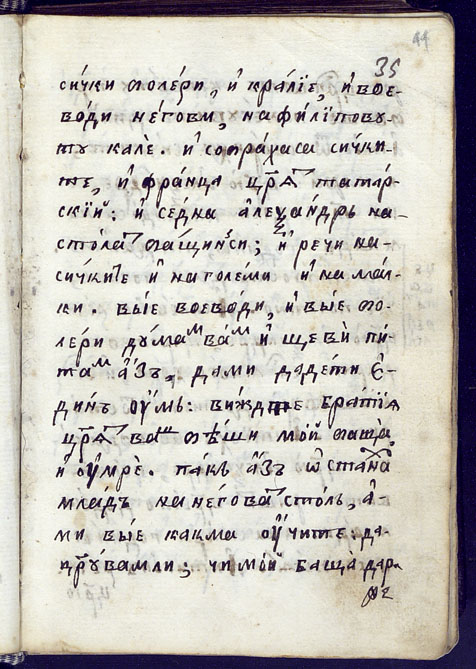 44
35
си́чки болѣри, и҆ кра́лїе, и҆ вое-
во́ди не́гови, на фи́лїпову-
ту калѐ. и҆ собраха са си́чки-
те, и҆ фра́нца цр҃ѧ тата́р-
скїй: и҆ се́дна а҆леѯа́ндрь на-
сто́ла баш̾и́нси; и҆ речи на-
сички́те и҆ на големи и҆ на ма́л-
ки. вы́е воево́ди, и҆ вы́е бо-
лери ду́маⷨ ваⷨ и҆ ще ви̇̀ пи́-
таⷨ а҆́зъ, да ми дадети є҆-
ди́нъ оу҆мь: ви́ждте бра́тїѧ
цр҃ѧ ваⷲ бѣ́ши мо́й баща̀,
и҆ оу҆мрѐ. пакь а҆́зъ ѡ҆ста́на
младъ на не́гова столь, а҆-
ми вы́е какма оу҆́чите, да-
цр҃ꙋвамли; чи мо́й баща дар-